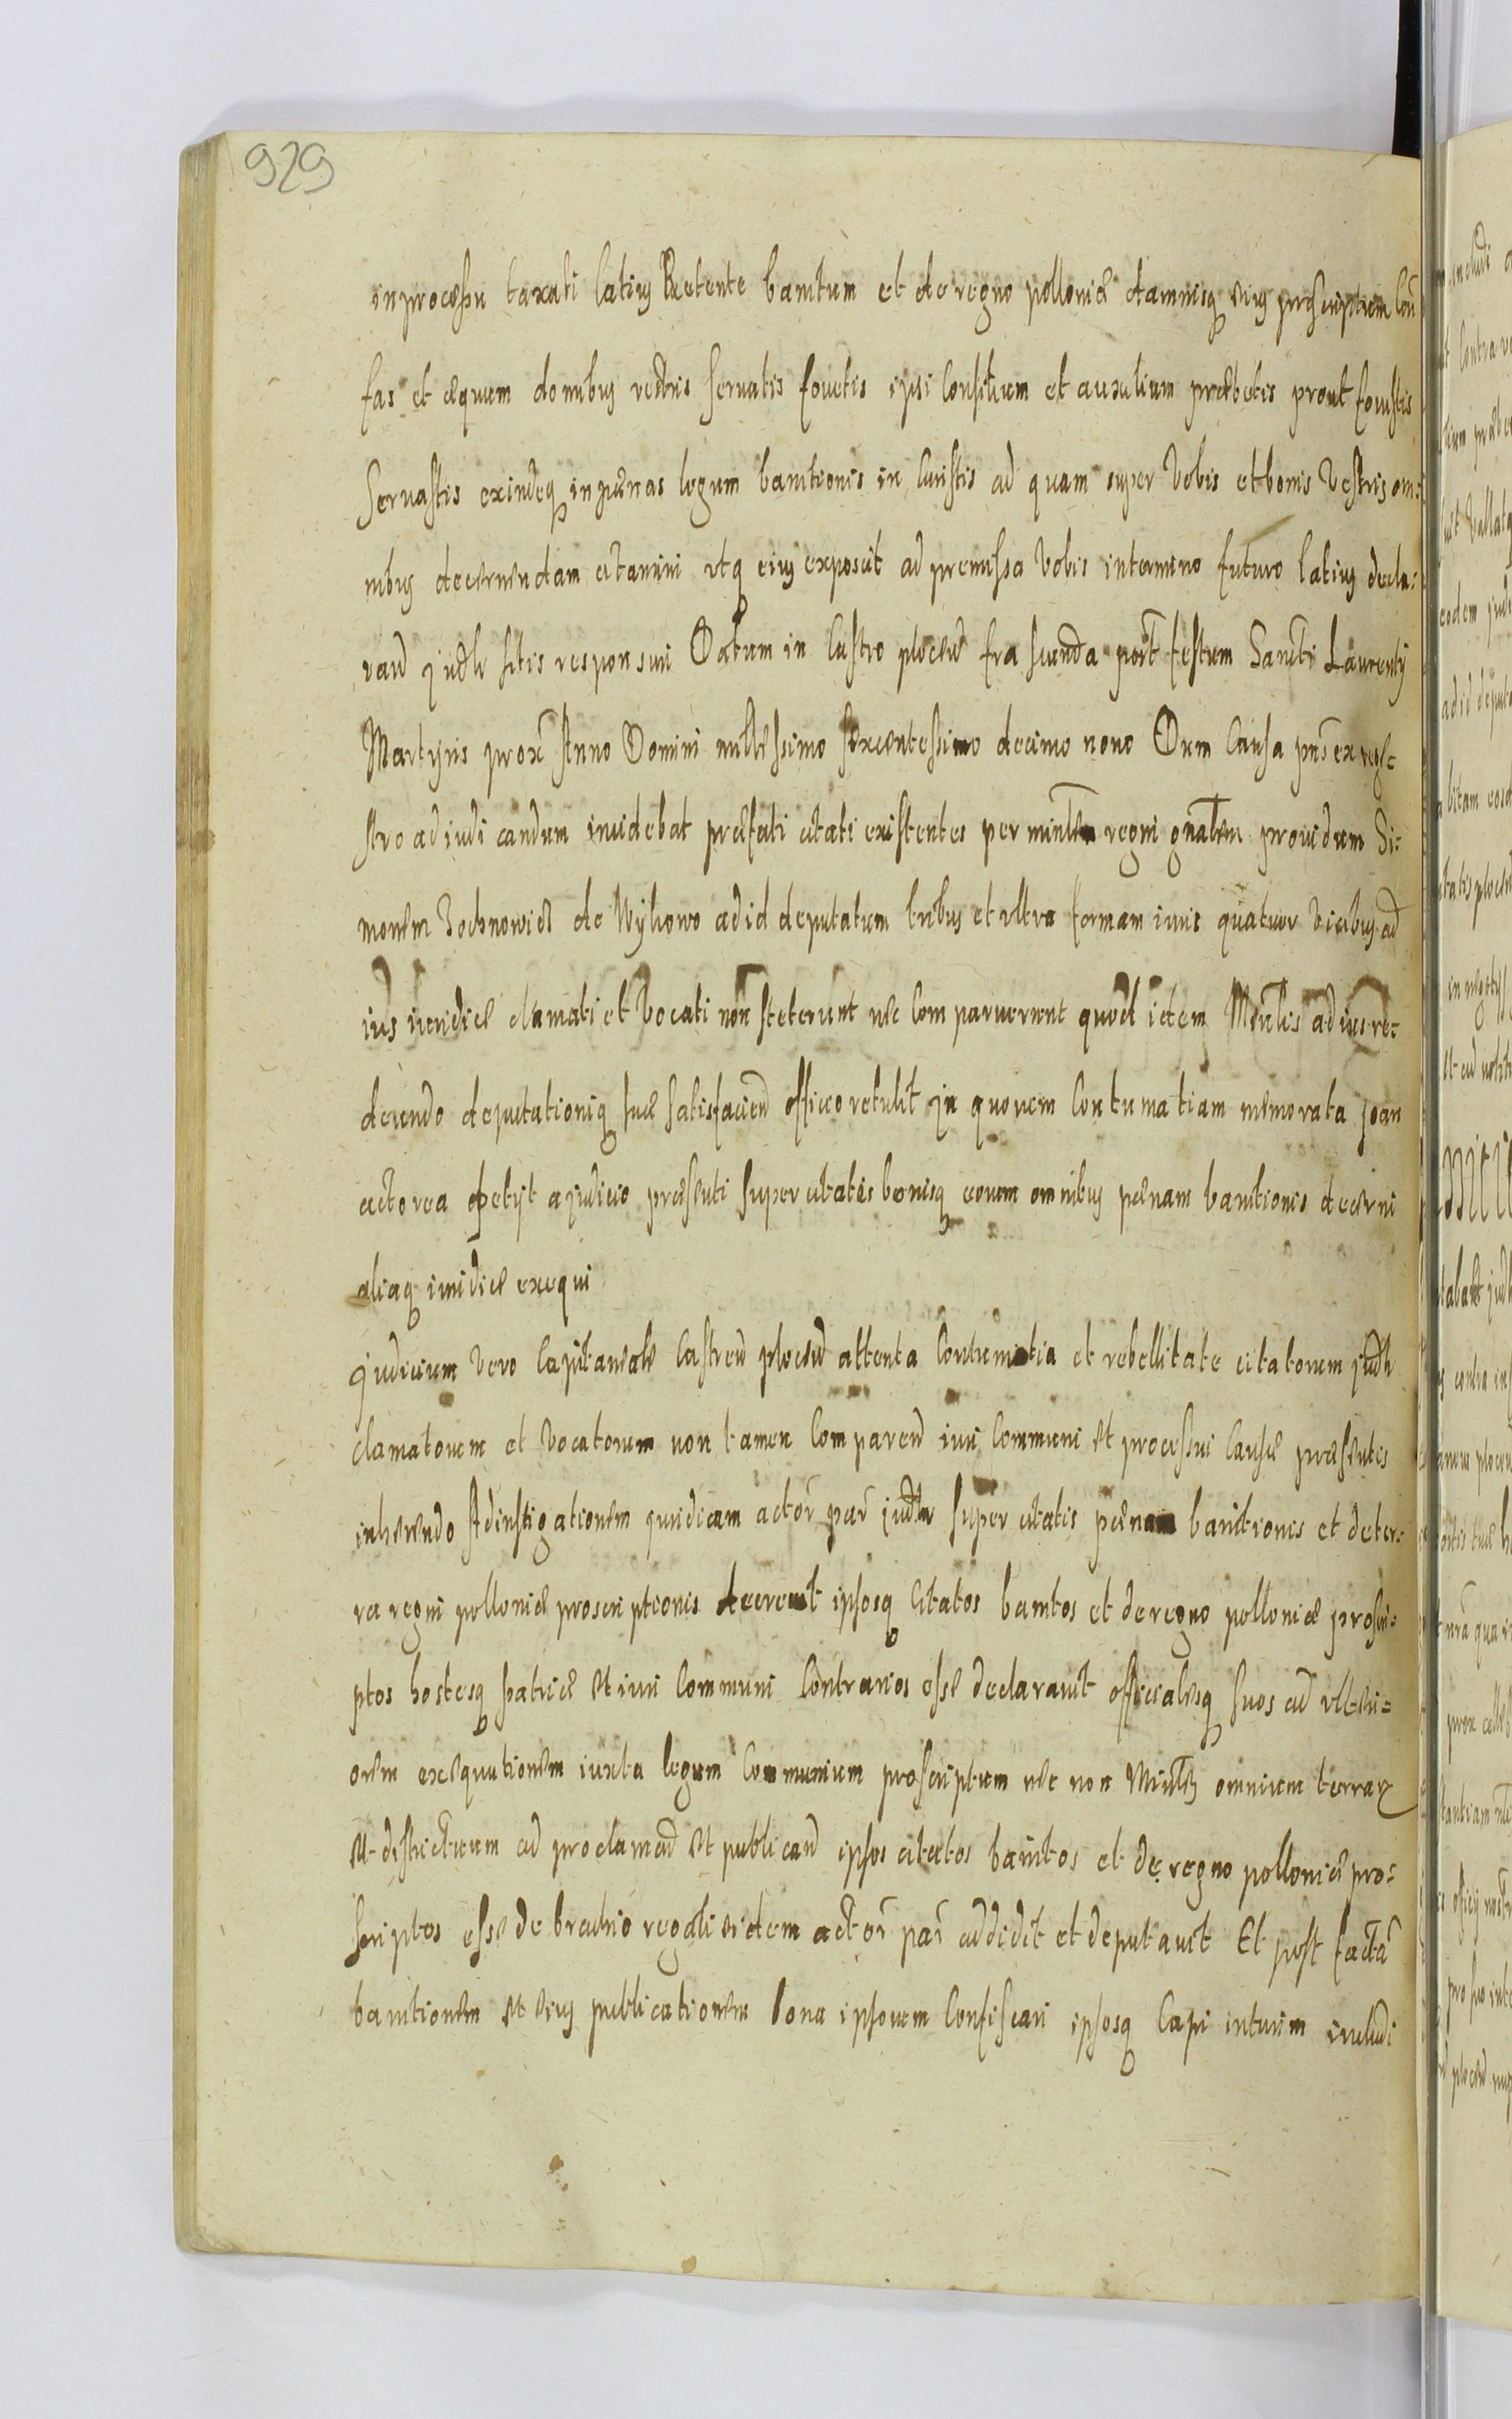 929
in processu taxati latius Retente banitum et de regno polloniæ damnisq eius proscriptum
fas et æquum domibus vestris seruatis fouetis ipsi Consilium et auxilium præbetis prout fouistis
Seruastis exindeq in pænas legum banitionis in Curistis ad quam super Vobis et bonis Vestris om:
nibus decernendam citamini vtq eius exposcit ad premissa Vobis in termino futuro latius decla:
rand judlr sitis responsuri Datum in Castro plocen fra secunda post festum Sancti Laurentij
Martyris prox Anno Domini millessimo sexcentessimo decimo nono Dum Causa pns ex regi-
stro ad iudicandum incidebat præfati citati existentes per mintlem regni gnalem prouidum Si:
monem Zochnowicz de Wykowo ad id deputatum tribus et vltra formam iuris quatuor Vicibus ad
ius iuridice clamati et Vocati non steterunt nec Comparuerunt quod idem Mintlis ad ius re:
deundo deputationiq suæ satisfaciend officio retulit In quorum Contumatiam memorata pars
actorea petijt a judicio præsenti super citatis bonisq eorum omnibus pænam banitionis decerni
aliaq iuridice exequi
Judicium Vero Capitaneale Castren plocen attenta Contumatia et rebellitate citatorum judlr
clamatorum et Vocatorum non tamen Comparen iuri Communi et processui Causæ præsentis
inherendo Ad instigationem juridicam actor par judlr super citatis pænam banitionis et de ter:
ra regni polloniæ proscriptionis decreuit ipsosq Citatos banitos et de regno polloniæ proscri:
ptos hostesq patriæ et iuri Communi Contrarios esse declarauit officialesq suos ad vlteri=
orem exequutionem iuxta legum Communium proscriptum nec non Mintles omnium terrar
et districtuum ad proclamand et publicand ipsos citatos banitos et de regno polloniæ pro:
scriptos esse de brachio regali eidem actor par addidit et deputauit Et post factã
banitionem et eius publicationem bona ipsorum Confiscari ipsosq Capi in turrim includi